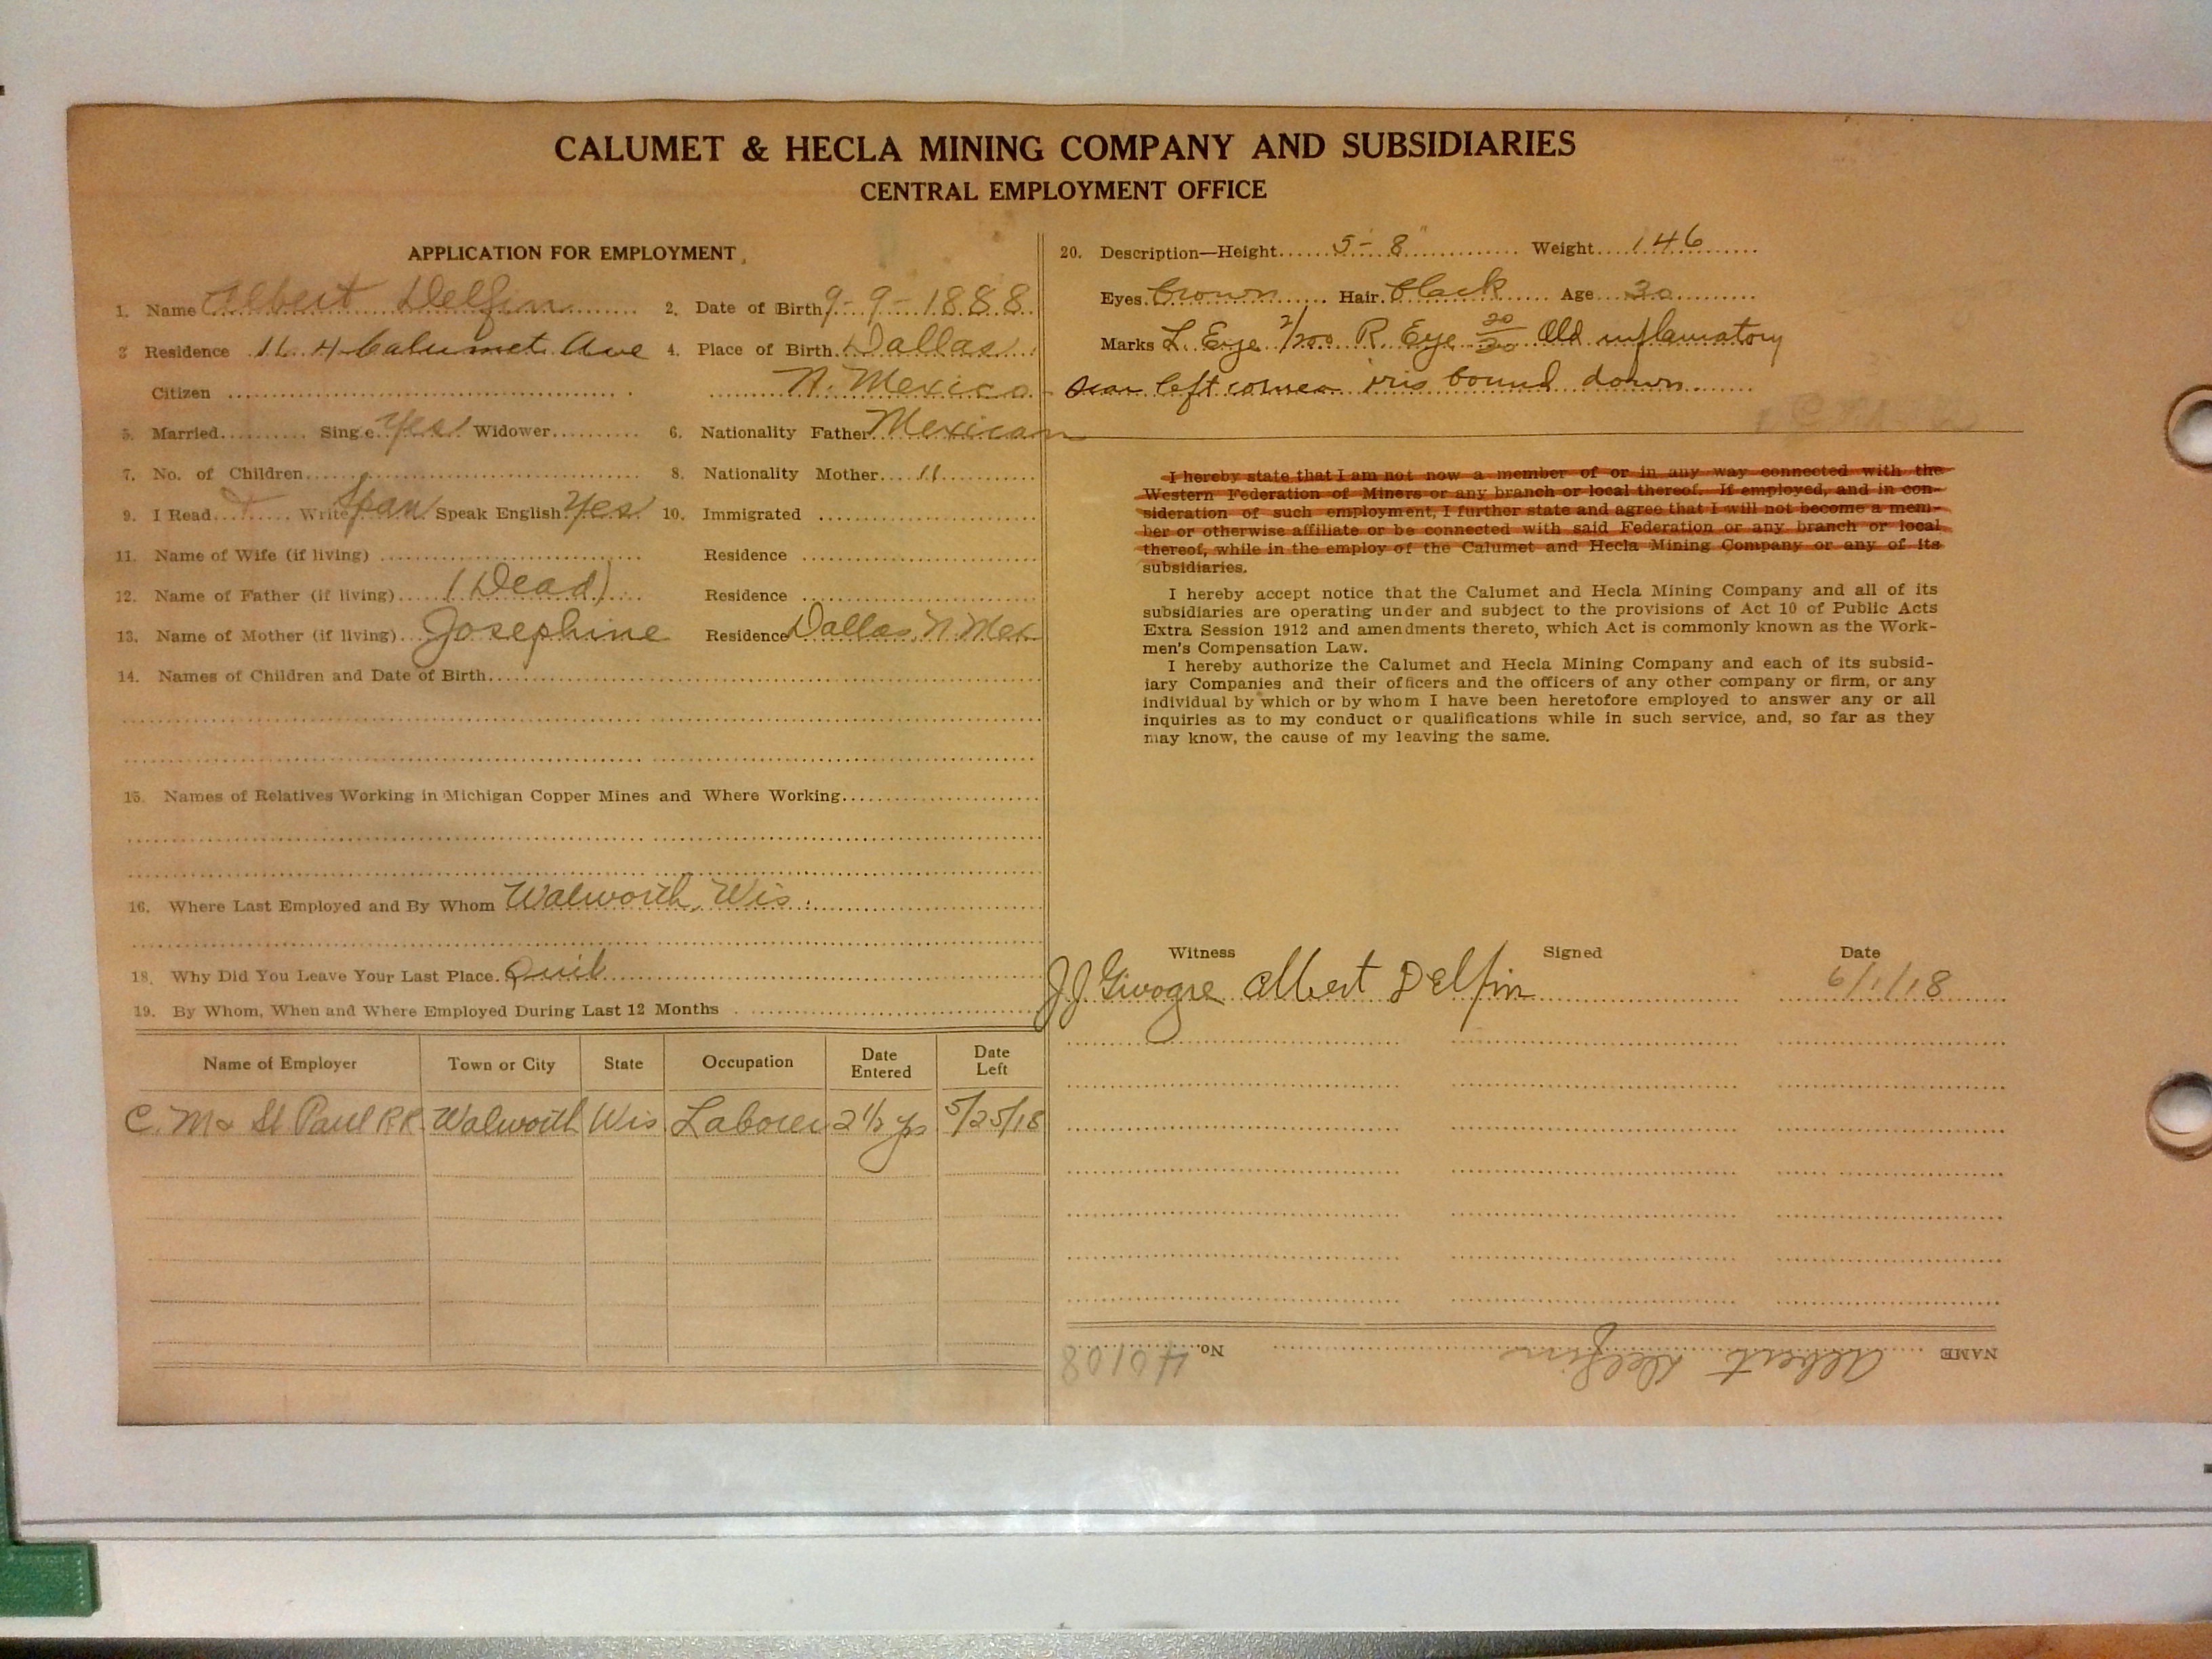 CALUMET & HECLA MINING COMPANY AND SUBSIDIARIES
CENTRAL EMPLOYMENT OFFICE
APPLICATION FOR EMPLOYMENT
1. Name Albert Delfin 2. Date of Birth 9-9-1888
3 Residence 114 Calumet Ave 4. Place of Birth Dallas
Citizen N. Mexico
5. Married Single Yes Widower 6. Nationality Father Mexican
7. No. of Children 8. Nationality Mother "
9. I Read Write Span Speak English Yes 10. Immigrated
11. Name of Wife (if living) Residence
12. Name of Father (if living) (Dead) Residence
13. Name of Mother (if living) Josephine Residence Dallas, N. Mex
14. Names of Children and Date of Birth
15. Names of Relatives Working in Michigan Copper Mines and Where Working
16. Where Last Employed and By Whom Walworth, Wis.
18. Why Did You Leave Your Last Place. Quit
19. By Whom, When and Where Employed During Last 12 Months
Name of Employer Town or City State Occupation Date Entered Date Left
C. M & St Paul R.R. Walworth Wis Laborer 2 1/2 yrs 5/25/18
20. Description—Height 5-8" Weight 146
Eyes brown Hair black Age 30
Marks L. Eye 2/200 R. Eye 20/30 Old inflamatory
scar left cornea iris bound down
I hereby state that I am not now a member of or in any way connected with the
Western Federation of Miners or any branch or local thereof. If employed, and in con-
sideration of such employment, I further state and agree that I will not become a mem-
ber or otherwise affiliate or be connected with said Federation or any branch or local
thereof, while in the employ of the Calumet and Hecla Mining Company or any of its
subsidiaries.
I hereby accept notice that the Calumet and Hecla Mining Company and all of its
subsidiaries are operating under and subject to the provisions of Act 10 of Public Acts
Extra Session 1912 and amendments thereto, which Act is commonly known as the Work-
men's Compensation Law.
I hereby authorize the Calumet and Hecla Mining Company and each of its subsid-
iary Companies and their officers and the officers of any other company or firm, or any
individual by which or by whom I have been heretofore employed to answer any or all
inquiries as to my conduct or qualifications while in such service, and, so far as they
may know, the cause of my leaving the same.
Witness Signed Date
J J Albert Delfin 6/1/18
NAME Albert Delfin No. 40108